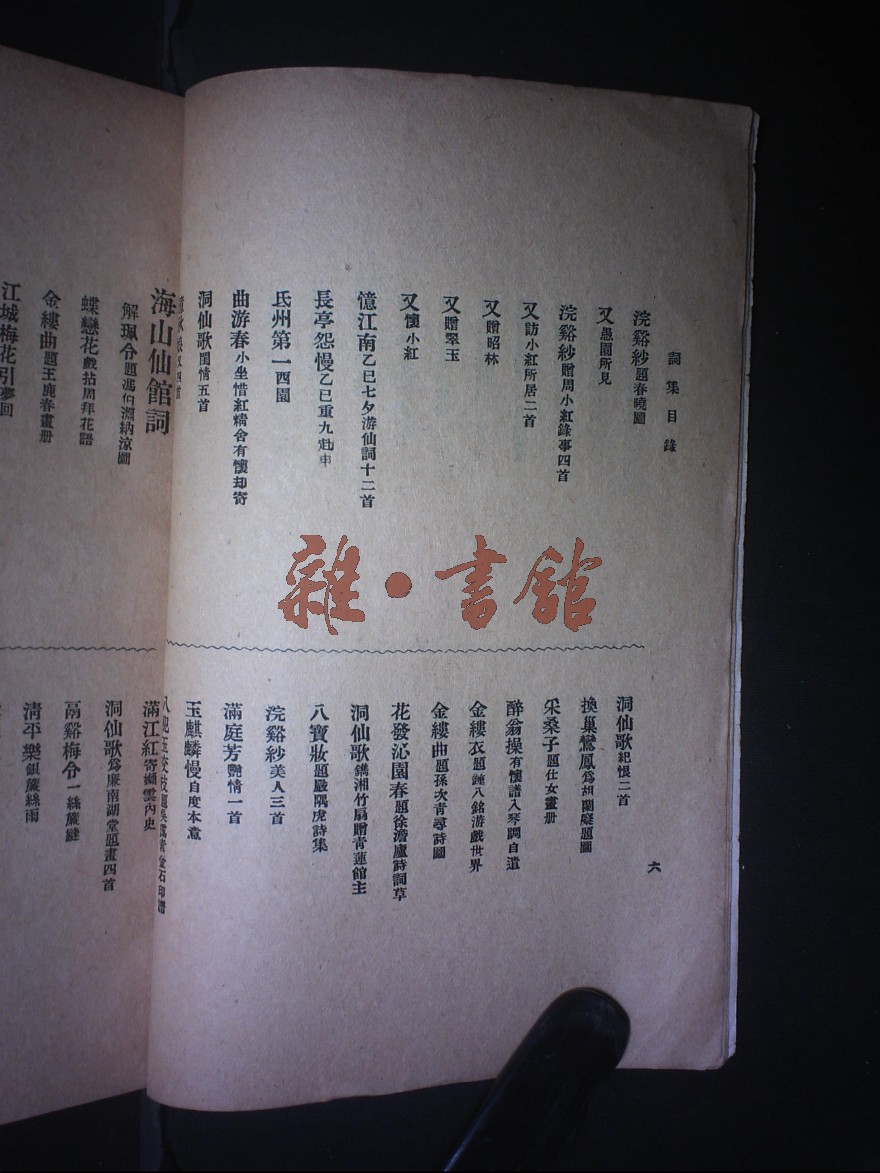 詞集目錄
六
浣谿紗題春曉圖
又愚園所見
浣谿紗贈周小紅錄事四首
又訪小紅所居二首
又贈昭林
又贈翠玉
又懷小紅
憶江南乙巳七夕游仙詞十二首
長亭怨慢乙巳重九
氐州第一西園
曲游春小坐惜紅精舍有懷却寄
洞仙歌閨情五首
洞仙歌紀恨二首
換巢鸞鳳爲胡蘭癡題圖
采桑子題仕女畫册
醉翁操有懷譜入琴調自遣
金縷衣題鍾八銘游戲世界
金縷曲題孫次青尋詩圖
花發沁園春題徐澹廬詩詞草
洞仙歌鐫湘竹扇贈青蓮館主
八寶妝題嚴隅虎詩集
浣谿紗美人三首
滿庭芳艷情一首
玉麒麟慢自度本意
海山仙館詞
解珮令題馮伯淵納涼圖
蝶戀花戲拈周拜花語
金縷曲題王鹿春畫册
江城梅花引夢回
滿江紅寄緗雲內史
洞仙歌爲廉南湖堂題畫四首
鬲谿梅令一絲簾縫
清平樂銀簾絲雨
雜·書館